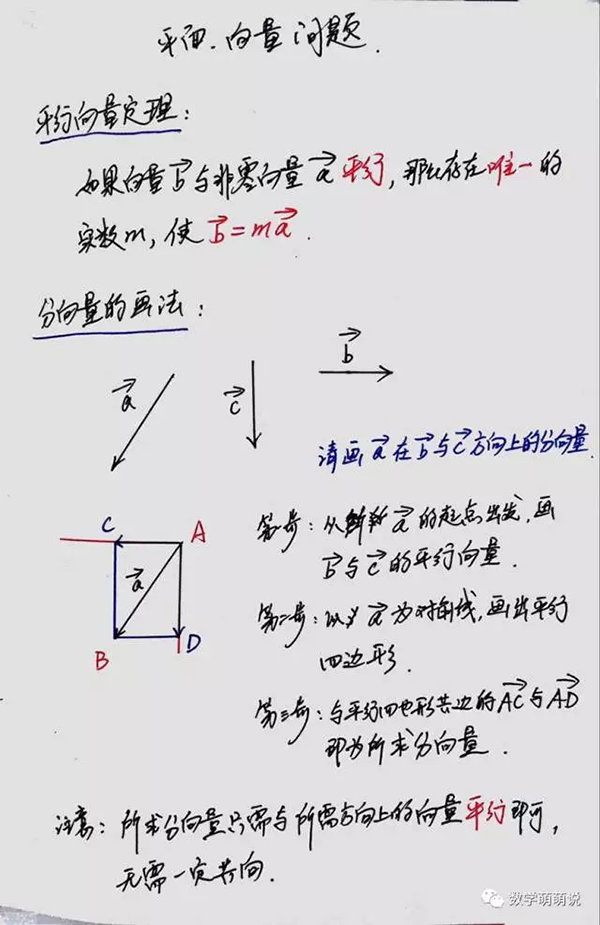 平面向量问题.
平行向量定理:
如果向量b与非零向量a平行,那么存在唯一的
实数m,使b=ma.
分向量的画法:
a
c
b
请画a在b与c方向上的分向量.
C
A
a
B
D
第一步:从a的起点出发,画
b与c的平行向量.
第二步:以a为对角线,画出平行
四边形.
第三步:与平行四边形共边的AC与AD
即为所求分向量.
注意:所求分向量只需与所需方向上的向量平行即可,
无需一定共向.
数学萌萌说